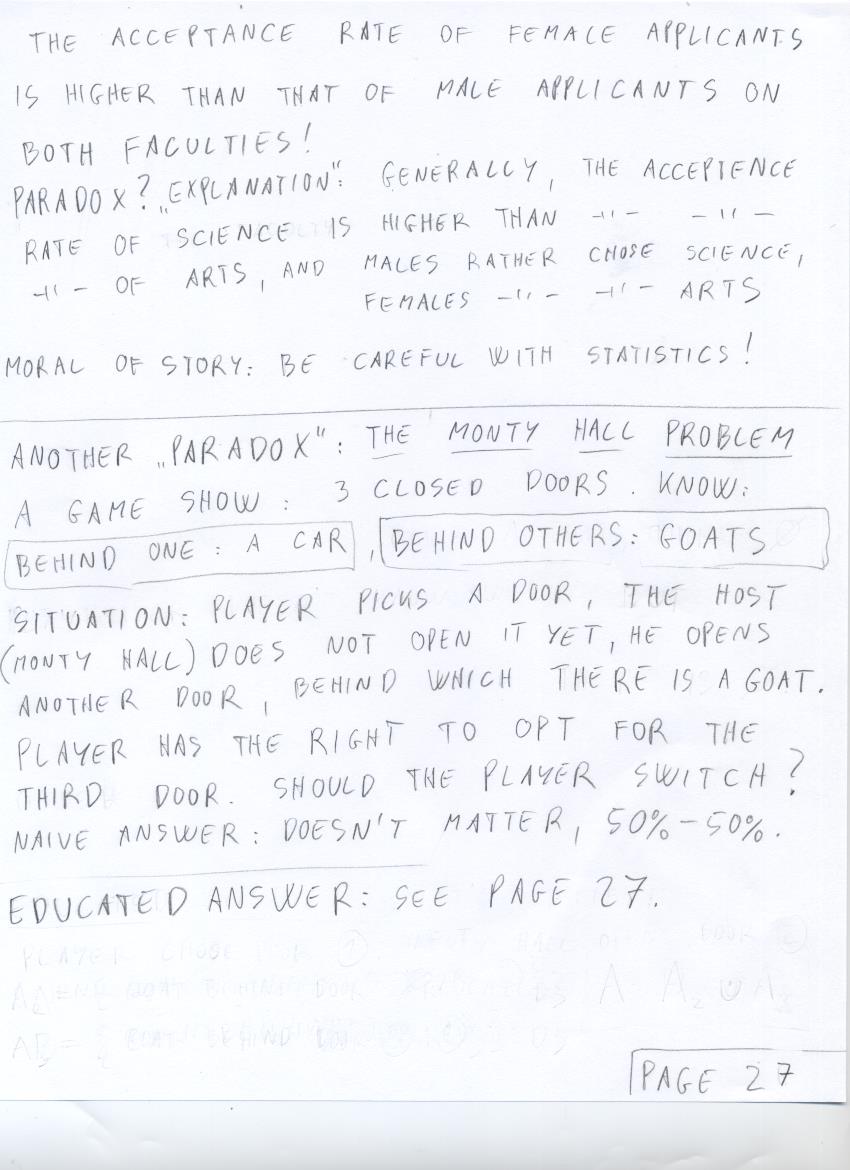 THE ACCEPTANCE RATE OF FEMALE APPLICANTS
IS HIGHER THAN THAT OF MALE APPLICANTS ON
BOTH FACULTIES!
PARADOX? „EXPLANATION": GENERALLY, THE ACCEPTENCE
RATE OF SCIENCE IS HIGHER THAN -"- -"-
-"- OF ARTS, AND MALES RATHER CHOSE SCIENCE,
FEMALES -"- -"- ARTS
MORAL OF STORY: BE CAREFUL WITH STATISTICS!
ANOTHER „PARADOX": THE MONTY HALL PROBLEM
A GAME SHOW: 3 CLOSED DOORS. KNOW:
BEHIND ONE: A CAR, BEHIND OTHERS: GOATS
SITUATION: PLAYER PICKS A DOOR, THE HOST
(MONTY HALL) DOES NOT OPEN IT YET, HE OPENS
ANOTHER DOOR, BEHIND WHICH THERE IS A GOAT.
PLAYER HAS THE RIGHT TO OPT FOR THE
THIRD DOOR. SHOULD THE PLAYER SWITCH?
NAIVE ANSWER: DOESN'T MATTER, 50%-50%.
EDUCATED ANSWER: SEE PAGE 27.
PAGE 27